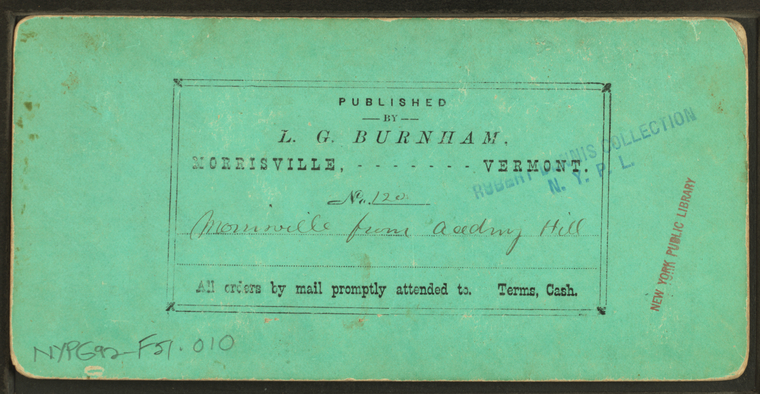 PUBLISHED
BY
L. G. BURNHAM,
MORRISVILLE, - - - - - - - VERMONT.
No. 120
Morrisville from Acedmy Hill
All orders by mail promptly attended to. Terms, Cash.
ROBERT DENNIS COLLECTION
N. Y. P. L.
NEW YORK PUBLIC LIBRARY
NYPG92-F51.010